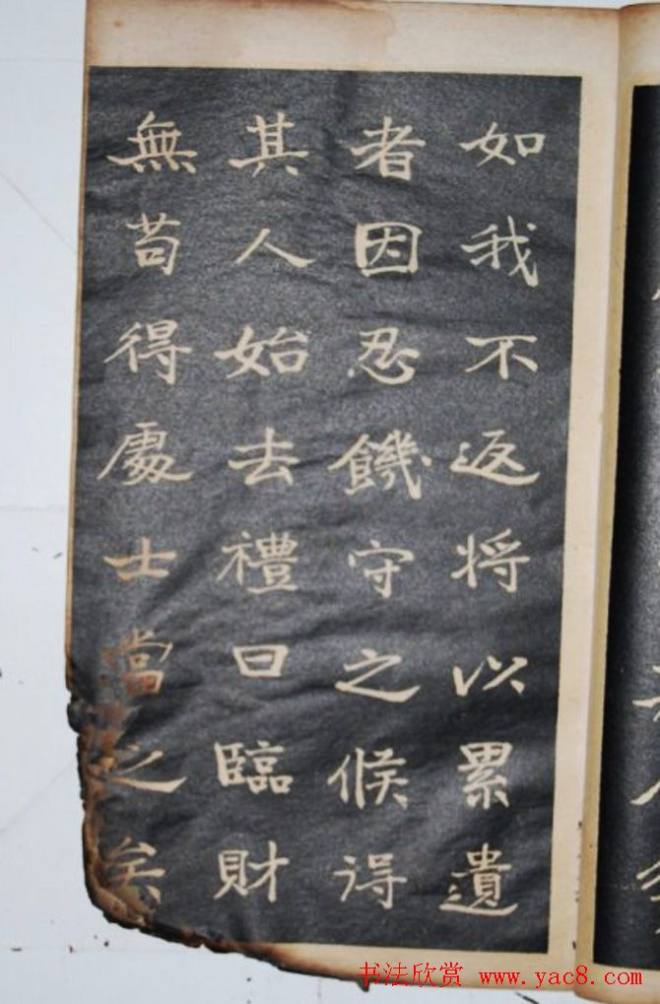 如我不返将以累遺
者因忍饑守之候得
其人始去禮曰臨財
無苟得處士當之矣
书法欣赏 www.yac8.com